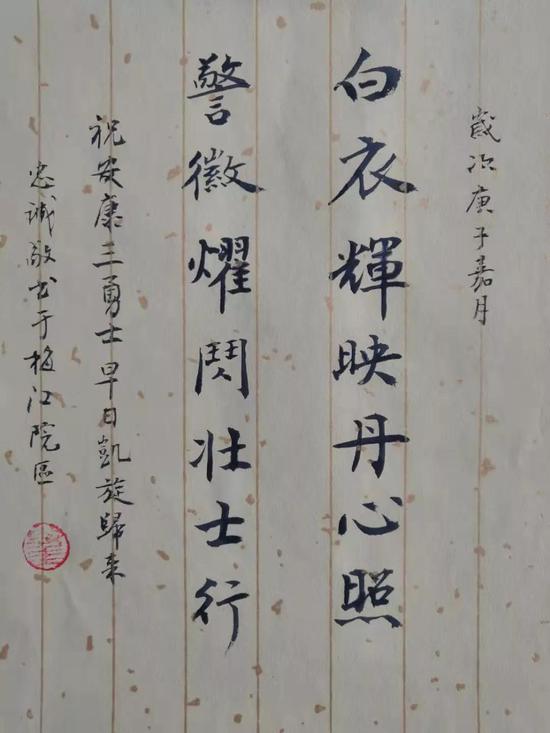 歲次庚子嘉月
白衣輝映丹心照
警徽燿閃壯士行
祝安康三勇士早日凱旋歸来
忠诚敬书于梅江院區